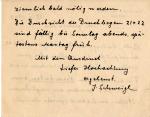 ziemlich bald nötig werden.
Die Durchsicht der Druckbogen 21 + 22
sind fällig bis Sonntag abends, spä-
testens Montag früh.
Mit dem Ausdruck
tiefer Hochachtung
ergebenst
J. Schweigl